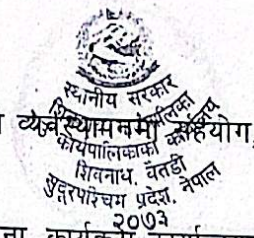 स्थानीय सरकार
कार्यपालिकाको कार्यालय
शिवनाथ, बैतडी
सुदूरपश्चिम प्रदेश, नेपाल
२०७३
व्यवस्थापनमा सहयोग,